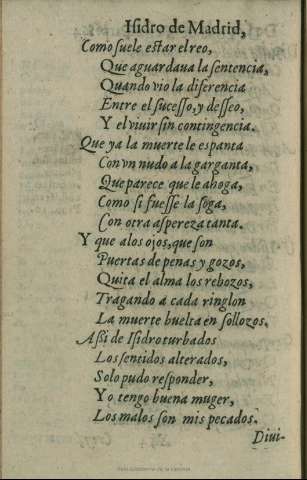 Isidro de Madrid,
Como suele estar el reo,
Que aguardaua la sentencia,
Quando vio la diferencia
Entre el sucesso, y desseo,
Y el viuir sin contingencia.
Que ya la muerte le espanta
Con vn nudo a la garganta,
Que parece que le ahoga,
Como si fuesse la soga,
Con otra aspereza tanta.
Y que a los ojos, que son
Puertas de penas y gozos,
Quita el alma los rebozos,
Tragando a cada ringlon
La muerte buelta en sollozos.
Assi de Isidro turbados
Los sentidos alterados,
Solo pudo responder,
Yo tengo buena muger,
Los malos son mis pecados.
Diui-